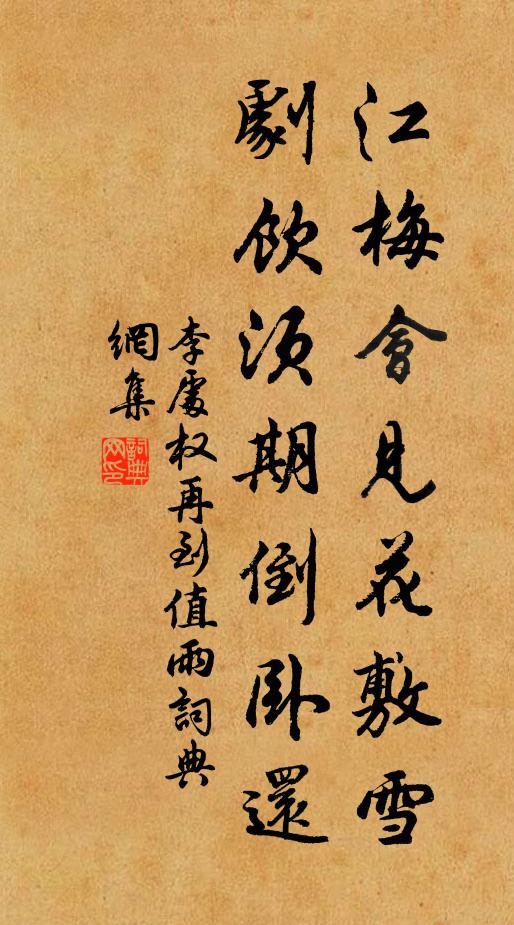 江梅會見花敷雪
劇飲須期倒卧還
李處权再到值雨詞典
網集
詞典網印